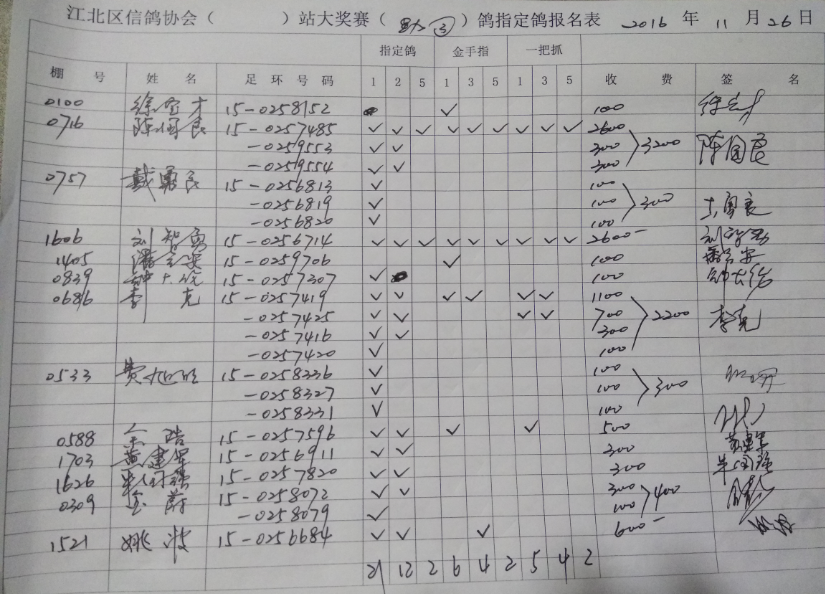 江北区信鸽协会（ ）站大奖赛（助③）鸽指定鸽报名表 2016 年 11 月 26 日
指定鸽 金手指 一把抓
棚 号 姓 名 足 环 号 码 1 2 5 1 3 5 1 3 5 收 费 签 名
0100 15-0258152 ✓ 100
0716 陈国良 15-0257485 ✓ ✓ ✓ ✓ ✓ ✓ ✓ ✓ ✓ 2600 3200 陈国良
-0259553 ✓ ✓ 300
-0259554 ✓ ✓ 300
0757 戴勇良 15-0256813 ✓ 100 300
-0256819 ✓ 100
-0256820 ✓ 100
1606 刘智勇 15-0256714 ✓ ✓ ✓ ✓ ✓ ✓ ✓ ✓ ✓ 2600- 刘智勇
1405 15-0259706 ✓ 100
0839 15-0257307 ✓ 100
0686 李克 15-0257419 ✓ ✓ ✓ ✓ ✓ ✓ 1100 2200 李克
-0257425 ✓ ✓ ✓ ✓ 700
-0257416 ✓ ✓ 300
-0257420 ✓ 100
0533 15-0258336 ✓ 100 300
-0258327 ✓ 100
-0258331 ✓ 100
0588 15-0257596 ✓ ✓ ✓ ✓ 500
1703 黄建军 15-0256911 ✓ ✓ 300 黄建军
1626 15-0257820 ✓ ✓ 300
0309 金蔚 15-0258072 ✓ ✓ 300 400
-0258079 ✓ 100
1521 姚波 15-0256684 ✓ ✓ ✓ 600-
21 12 2 6 4 2 5 4 2